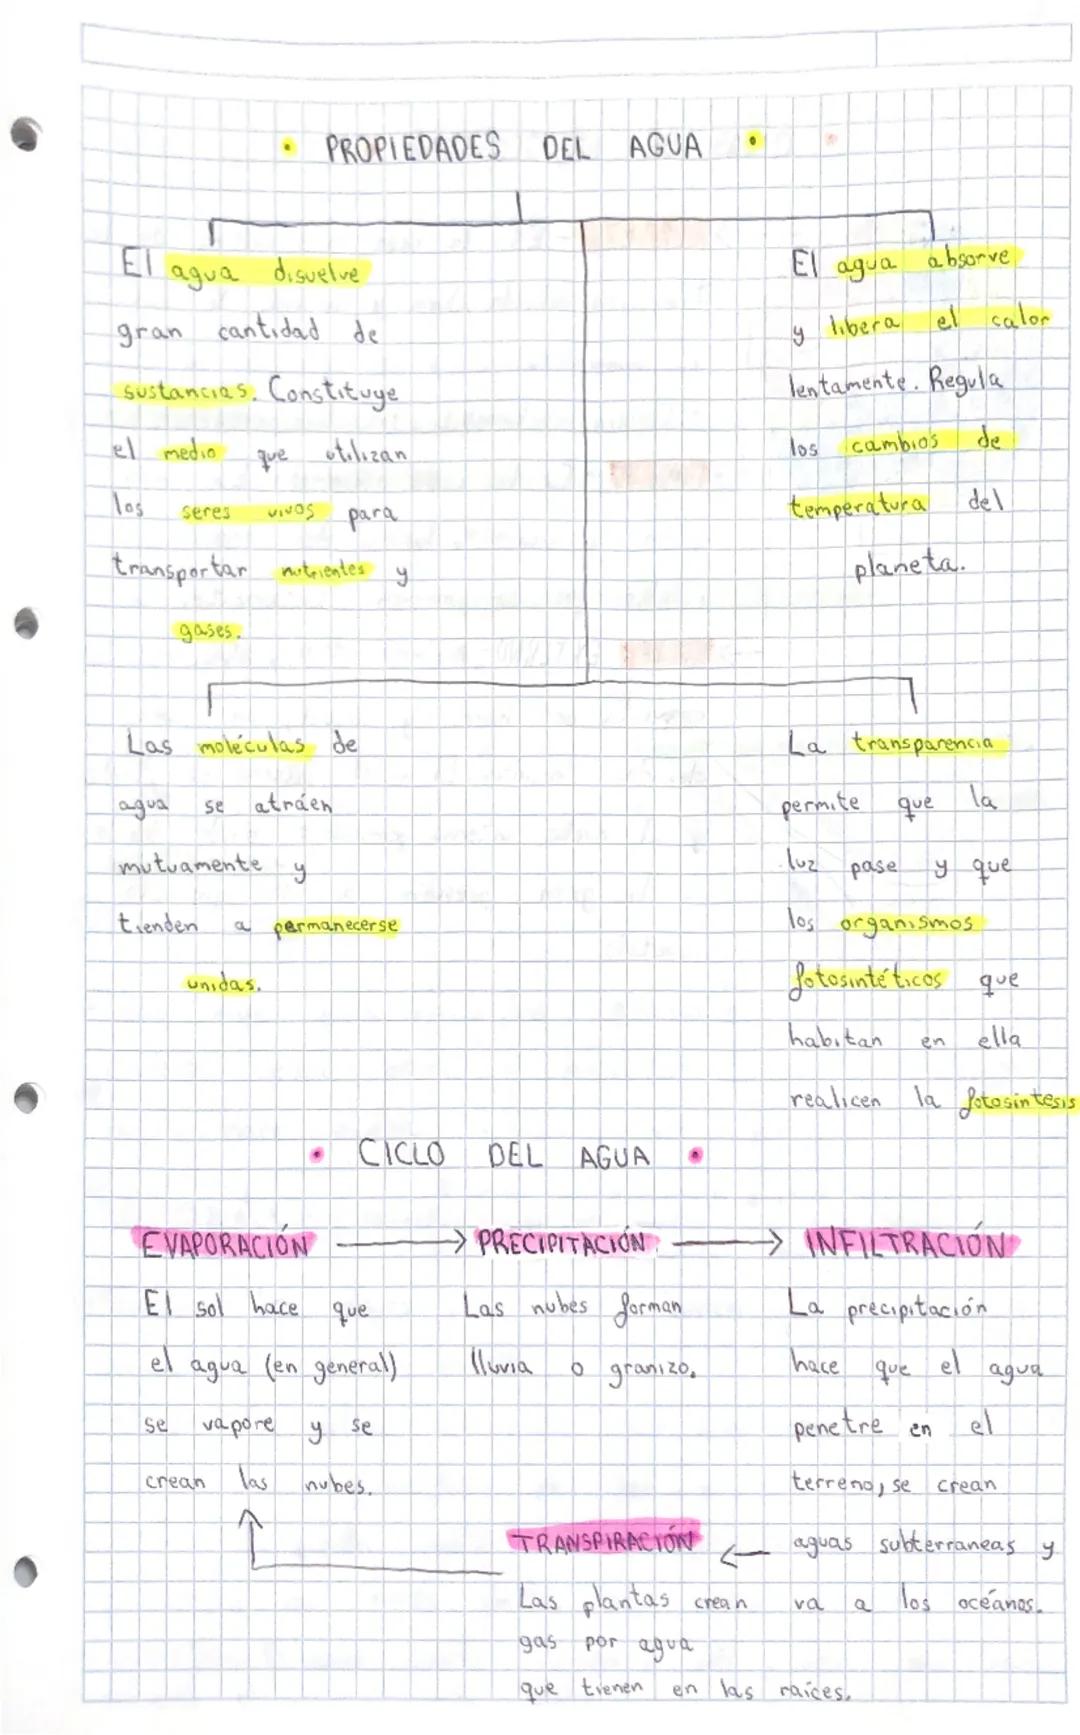 • PROPIEDADES DEL AGUA •
El agua disuelve
gran cantidad de
sustancias. Constituye
el medio que utilizan
los seres vivos para
transportar nutrientes y
gases.
El agua absorve
y libera el calor
lentamente. Regula
los cambios de
temperatura del
planeta.
Las moléculas de
agua se atráen
mutuamente y
tienden a permanecerse
unidas.
La transparencia
permite que la
luz pase y que
los organismos
fotosintéticos que
habitan en ella
realicen la fotosintesis
• CICLO DEL AGUA •
EVAPORACIÓN → PRECIPITACIÓN → INFILTRACIÓN
El sol hace que
el agua (en general)
se vapore y se
crean las nubes.
Las nubes forman
lluvia o granizo.
La precipitación
hace que el agua
penetre en el
terreno, se crean
aguas subterraneas y
va a los océanos.
TRANSPIRACIÓN ←
Las plantas crean
gas por agua
que tienen en las raíces.